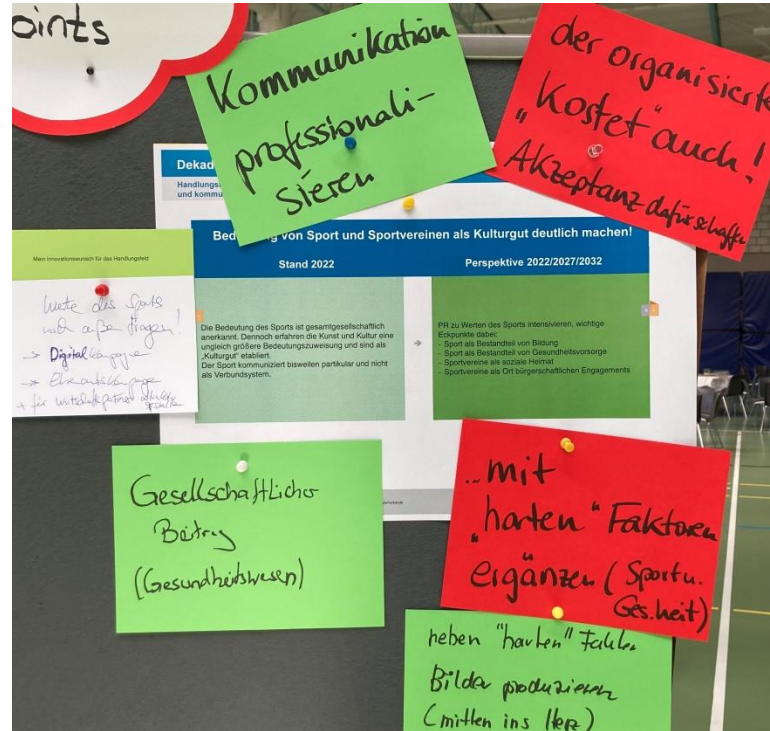 oints
Kommunikation
professionali-
sieren
der organisierte
"kostet" auch!
Akzeptanz dafür schaffen
Dekad
Handlungs
und kommu
Bedeutung von Sport und Sportvereinen als Kulturgut deutlich machen!
Stand 2022
Perspektive 2022/2027/2032
Die Bedeutung des Sports ist gesamtgesellschaftlich
anerkannt. Dennoch erfahren die Kunst und Kultur eine
ungleich größere Bedeutungszuweisung und sind als
„Kulturgut" etabliert.
Der Sport kommuniziert bisweilen partikular und nicht
als Verbundsystem.
PR zu Werten des Sports intensivieren, wichtige
Eckpunkte dabei:
- Sport als Bestandteil von Bildung
- Sport als Bestandteil von Gesundheitsvorsorge
- Sportvereine als soziale Heimat
- Sportvereine als Ort bürgerschaftlichen Engagements
Mein Innovationswunsch für das Handlungsfeld
Werte des Sports
nach außen tragen!
→ Digitalkampagne
→ Ehrenamtskampagne
→ für Wirtschaftspartner
Gesellschaftlicher
Beitrag
(Gesundheitswesen)
...mit
„harten" Faktoren
ergänzen (Sport u.
Ges.heit)
neben "harten" Fakten
Bilder produzieren
(mitten ins Herz)